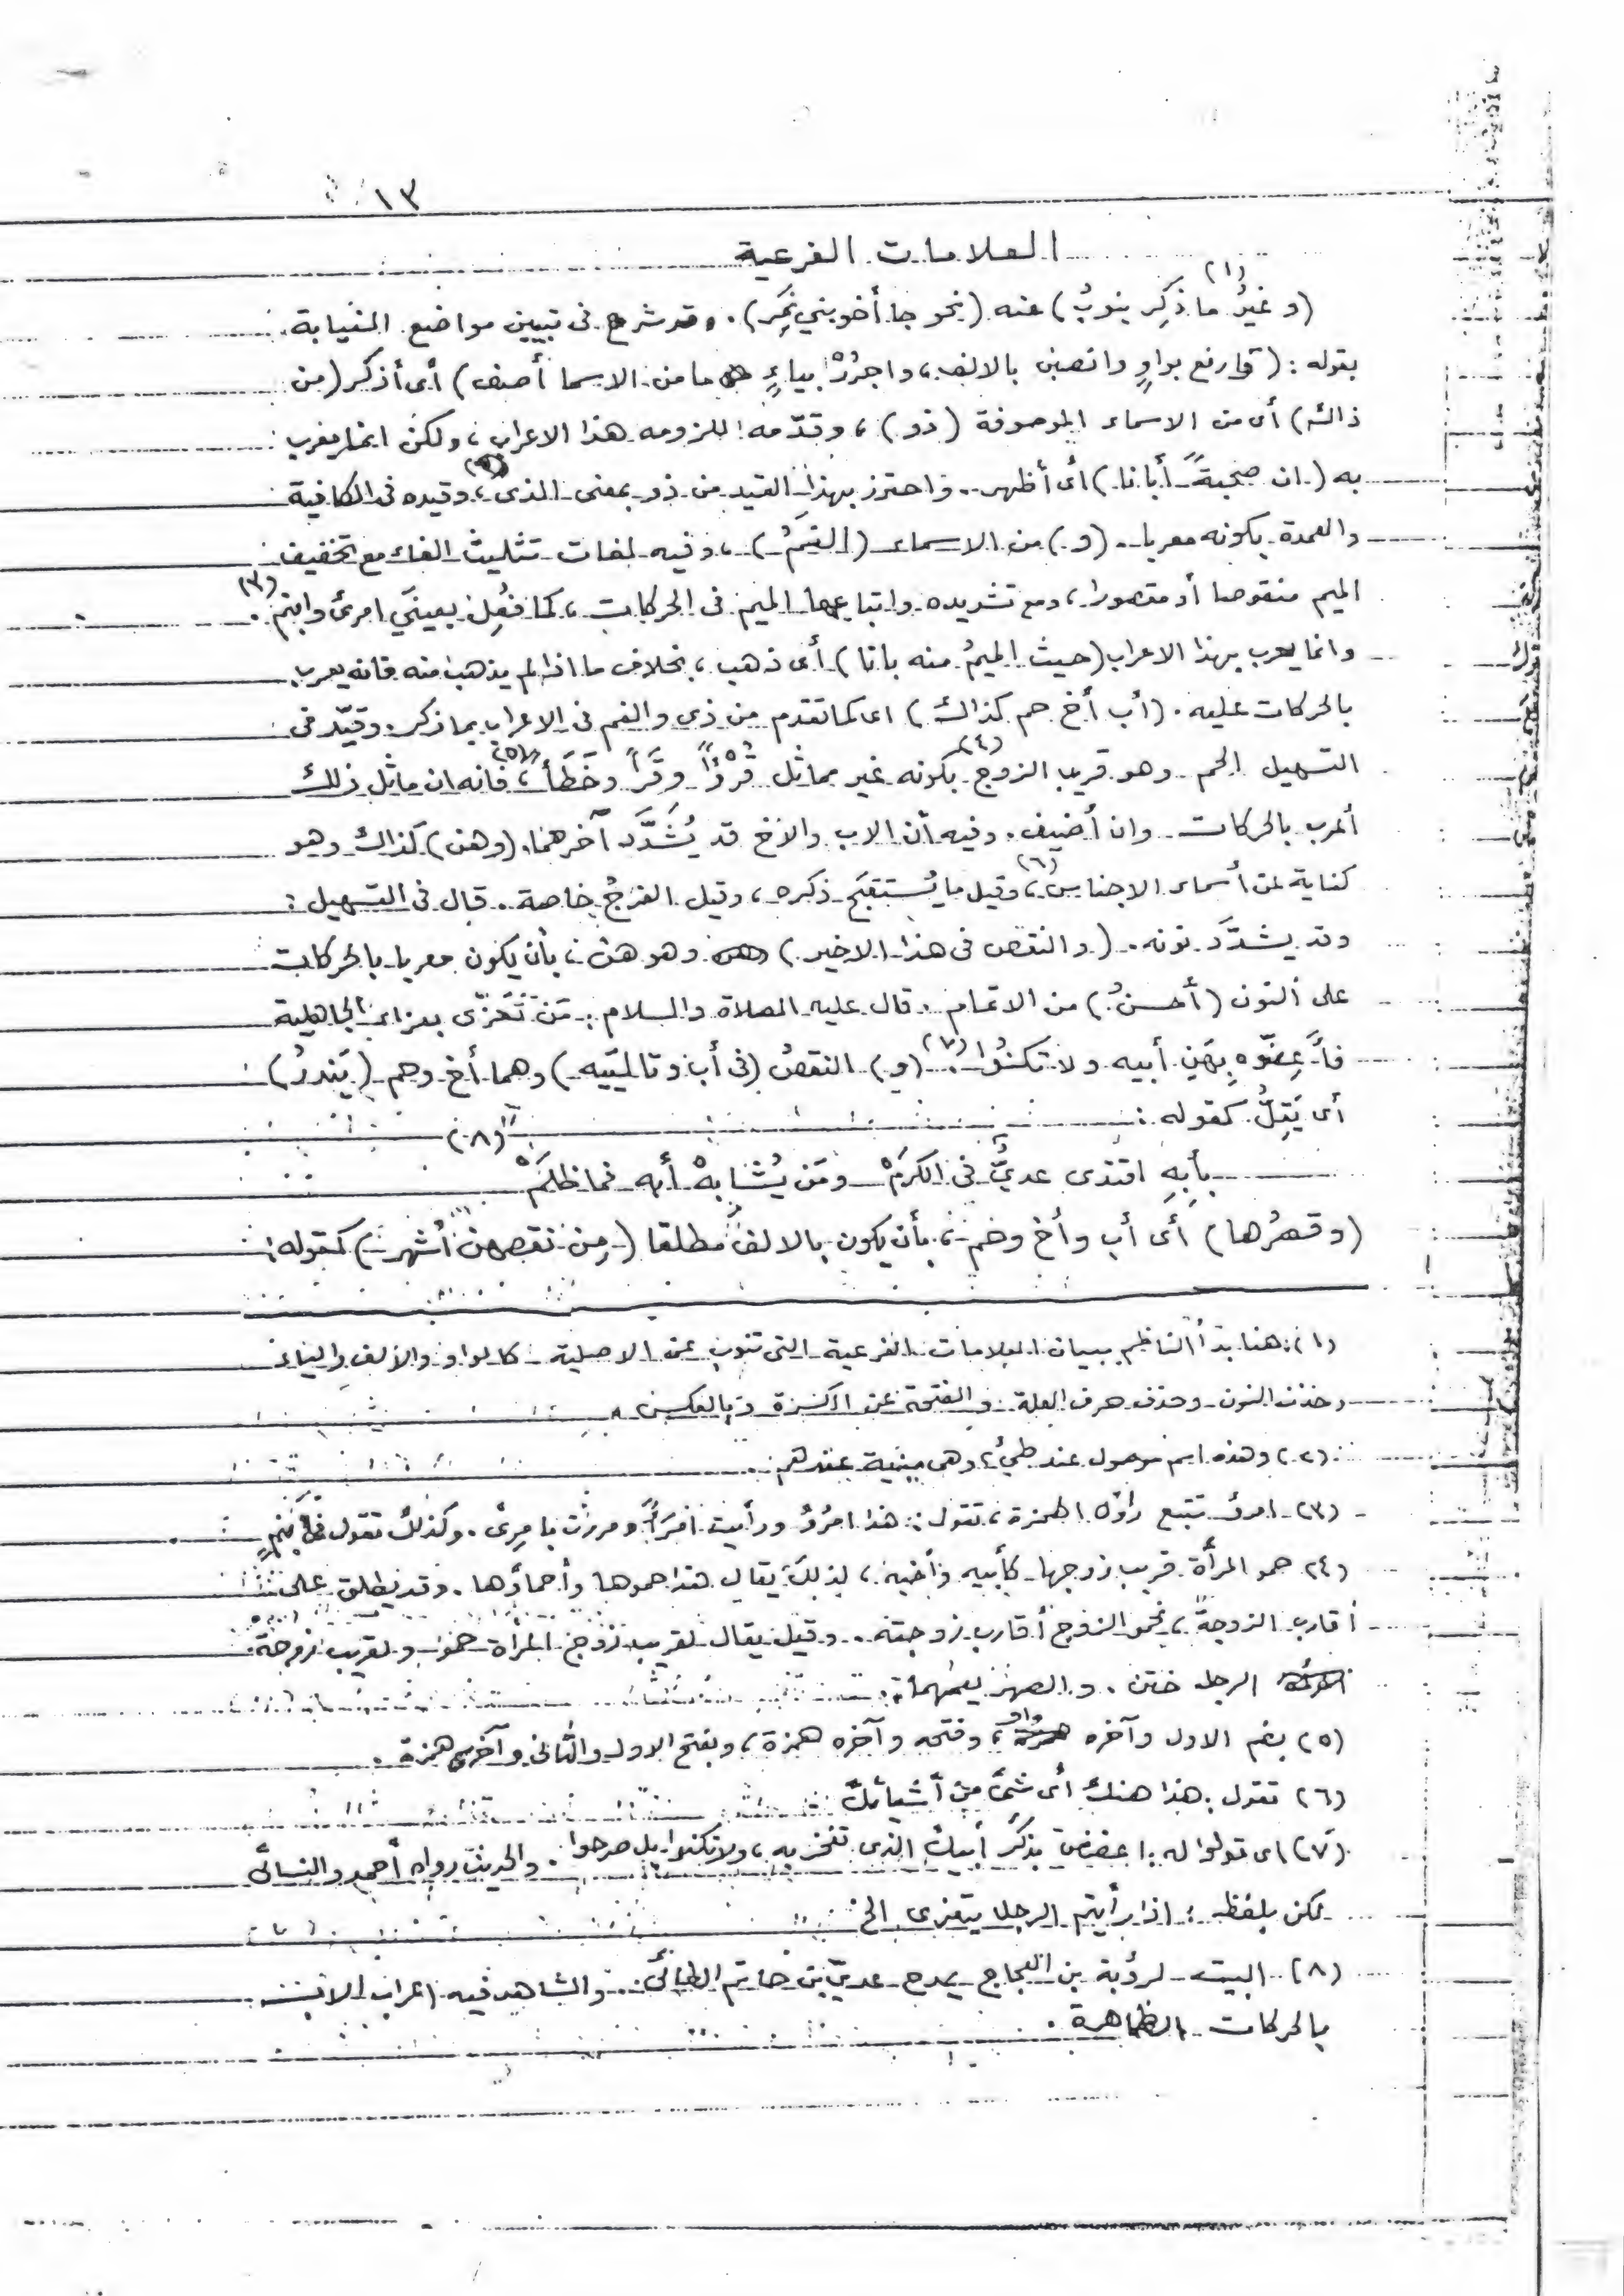 ١٣
العلامات الفرعية
(١)
(وغيرُ ما ذُكِر ينوبُ) عنه (نحو جا أخو بني نَمِر). وقد شرع فى تبيين مواضع النيابة
بقوله: (فارفع بواوٍ وانصبن بالالف، واجرُرْ بياءٍ ما من الاسما أصف) أى أذكر (من
ذاك) أى من الاسماء الموصوفة (ذو)، وقدّمه للزومه هذا الاعراب، ولكن انما يعرب
به (ان صحبةً أبانا) أى أظهر. واحترز بهذا القيد من ذو بمعنى الذى(٢)، وقيده فى الكافية
والعمدة بكونه معربا. (و) من الاسماء (الفمُ)، وفيه لغات تثليث الفاء مع تخفيف
الميم منقوصا أو مقصورا، ومع تشديده واتباعها الميم فى الحركات، كما فُعِل بعينَي امرئ وابنم(٣).
وانما يعرب بهذا الاعراب (حيث الميمُ منه بانا) أى ذهب، بخلاف ما اذا لم يذهب منه فانه يعرب
بالحركات عليه. (أب أخ حم كذاك) اى كما تقدم من ذى والفم فى الاعراب بما ذكر. وقيّد فى
التسهيل الحم وهو قريب الزوج(٤) بكونه غير مماثل قُرْوًا وقَرْأً وخَطَأً(٥)، فانه ان ماثل ذلك
أعرب بالحركات وان أُضيف. وفيه أن الاب والاخ قد يُشَدَّد آخرهما. (وهن) كذاك وهو
كناية عن أسماء الاجناس(٦)، وقيل ما يُستقبَح ذكره، وقيل الفرْجُ خاصة. قال فى التسهيل:
وقد يشدَّد نونه. (والنقص فى هذا الاخير) وهو هن، بأن يكون معربا بالحركات
على النون (أحسنُ) من الاتمام. قال عليه الصلاة والسلام: مَن تَعَزّى بعزاء الجاهلية
فأَعِضّوه بِهَنِ أبيه ولا تكنُوا(٧). (و) النقصُ (فى أب وتالِيَيه) وهما أخ وحم (يَندرُ)
أى يَقِلُّ كقوله:
(٨)
بأبِهِ اقتدى عديٌّ فى الكرَمْ ومَن يُشابِهْ أبه فما ظلَمْ
(وقصرُها) أى أب وأخ وحم، بأن يكون بالالف مطلقا (مِن نقصهن أشهر) كقوله:
(١) هنا بدأ الناظم ببيان العلامات الفرعية التى تنوب عن الاصلية كالواو والألف والياء
وحذف النون وحذف حرف العلة والفتحة عن الكسرة وبالعكس.
(٢) وهذه اسم موصول عند طيئ، وهى مبنية عندهم.
(٣) امرؤ تتبع راؤه الهمزة، تقول: هذا امرُؤ ورأيت امرَأً ومررت بامرِئ. وكذلك تقول فى ابنم
(٤) حمو المرأة قريب زوجها كأبيه وأخيه، لذلك يقال هذا حموها وأحماؤها. وقد يطلق على
أقارب الزوجة، نحو الزوج أقارب زوجته. وقيل يقال لقريب زوج المرأة حمو ولقريب زوجة
الرجل ختن. والصهر يعمّهما.
(٥) بضم الاول وآخره واو، وفتحه وآخره همزة، وبفتح الاول والثانى وآخره همزة.
(٦) تقول: هذا هنك أى شئ من أشيائك
(٧) اى قولوا له: اعضض بذكر أبيك الذى تفخر به، ولا تكنوا بل صرحوا. والحديث رواه أحمد والنسائى
لكن بلفظ: اذا رأيتم الرجل يتعزى الخ
(٨) البيت لرؤبة بن العجاج يمدح عديّ بن حاتم الطائى. والشاهد فيه اعراب الاب
بالحركات الظاهرة.